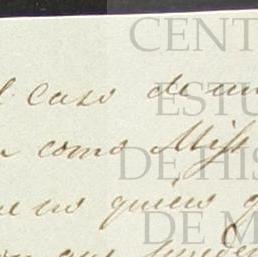 el caso de un
como Miss
no quiero
que
CENT
ESTU
DE HIS
DE M